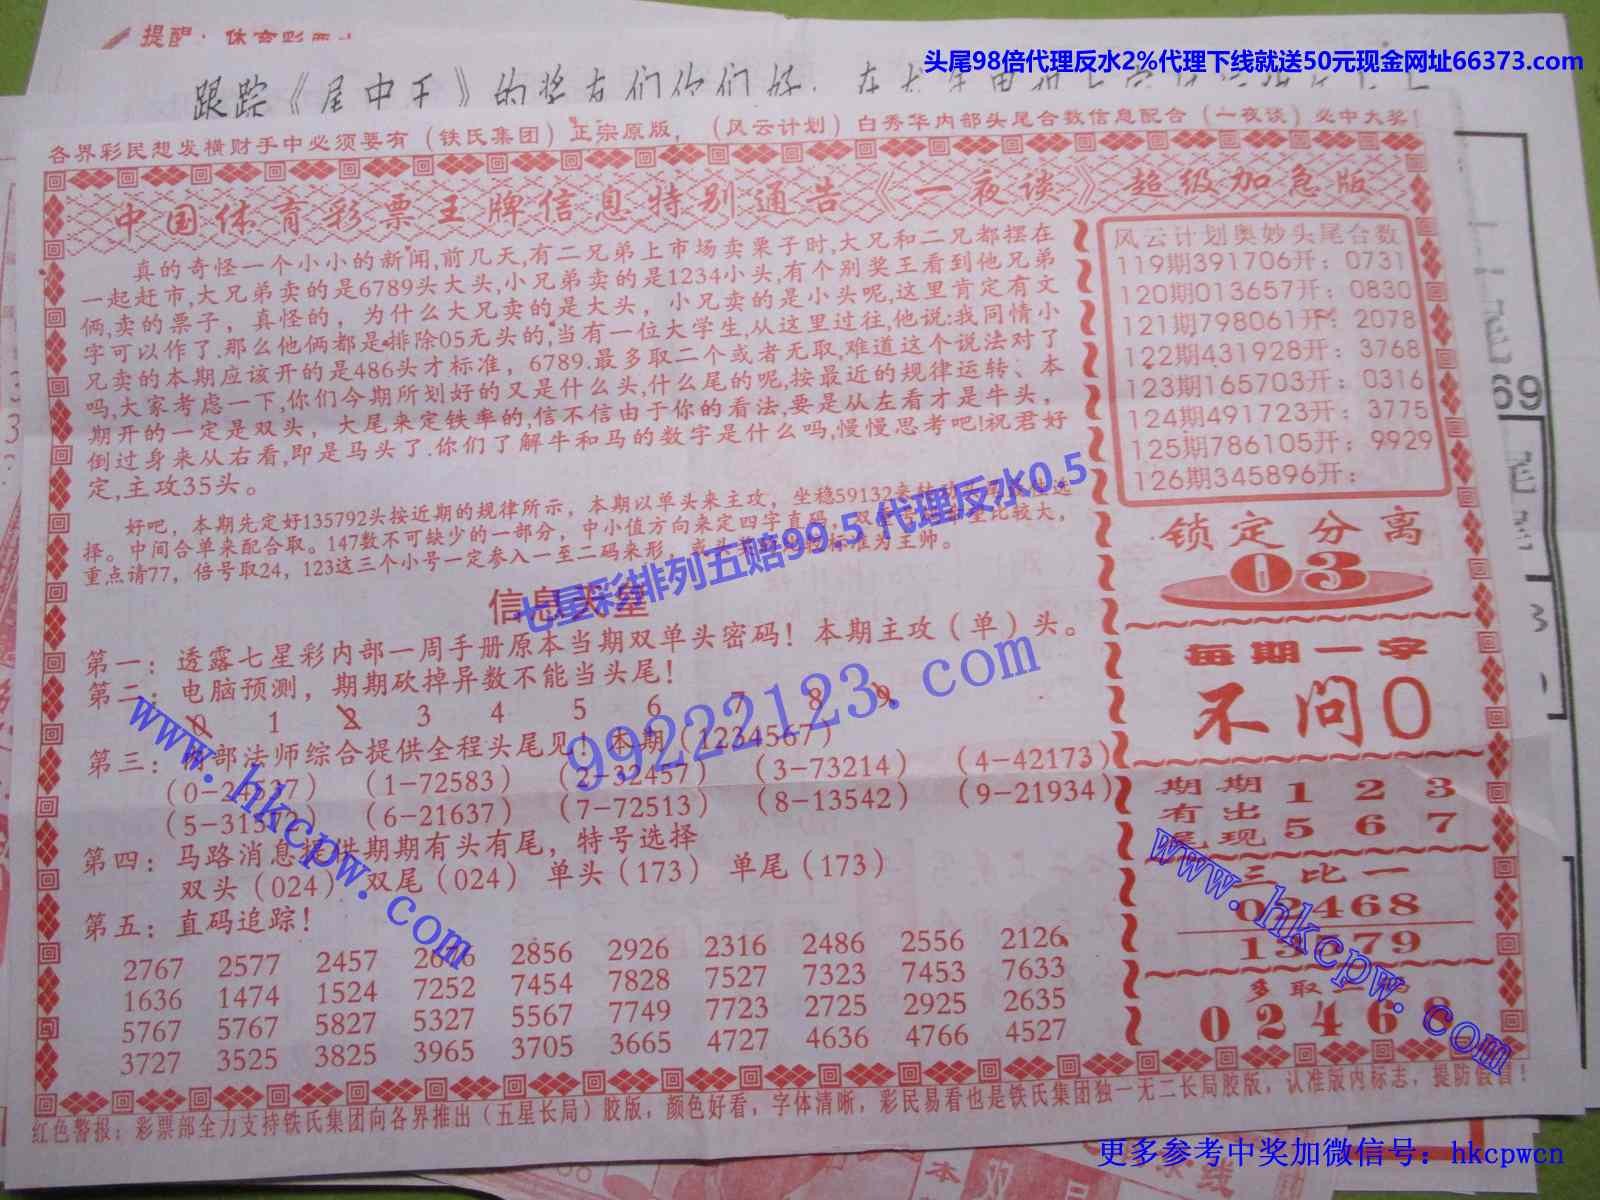 提醒：体育彩票
头尾98倍代理反水2%代理下线就送50元现金网址66373.com
跟踪《尾中王》的奖友们你们好
各界彩民想发横财手中必须要有（铁氏集团）正宗原版，（风云计划）白秀华内部头尾合数信息配合（一夜谈）必中大奖！
中国体育彩票王牌信息特别通告《一夜谈》超级加急版
真的奇怪一个小小的新闻,前几天,有二兄弟上市场卖栗子时,大兄和二兄都摆在
一起赶市,大兄弟卖的是6789头大头,小兄弟卖的是1234小头,有个别奖王看到他兄弟
俩,卖的票子，真怪的，为什么大兄卖的是大头，小兄卖的是小头呢,这里肯定有文
字可以作了.那么他俩都是排除05无头的,当有一位大学生,从这里过往,他说:我同情小
兄卖的本期应该开的是486头才标准，6789.最多取二个或者无取,难道这个说法对了
吗,大家考虑一下,你们今期所划好的又是什么头,什么尾的呢,按最近的规律运转、本
期开的一定是双头，大尾来定铁率的,信不信由于你的看法,要是从左看才是牛头，
倒过身来从右看,即是马头了.你们了解牛和马的数字是什么吗,慢慢思考吧!祝君好
定,主攻35头。
好吧，本期先定好135792头按近期的规律所示，本期以单头来主攻，坐稳59132来
择。中间合单来配合取。147数不可缺少的一部分，中小值方向来定四字直码，双
比较大，
重点请77，倍号取24，123这三个小号一定参入一至二码来形，
标准为王帅。
七星彩排列五赔99.5 代理反水0.5
信息天堂
第一：透露七星彩内部一周手册原本当期双单头密码！本期主攻（单）头。
第二：电脑预测，期期砍掉异数不能当头尾！
0 1 2 3 4 5 6 7 8 9
第三：内部法师综合提供全程头尾见！本期（1234567）
（1-72583）（2-32457）（3-73214）（4-42173）
（6-21637）（7-72513）（8-13542）（9-21934）
第四：马路消息提供期期有头有尾，特号选择
双头（024） 双尾（024） 单头（173） 单尾（173）
第五：直码追踪！
2767 2577 2457 2856 2926 2316 2486 2556 2126
1636 1474 1524 7252 7454 7828 7527 7323 7453 7633
5767 5767 5827 5327 5567 7749 7723 2725 2925 2635
3727 3525 3825 3965 3705 3665 4727 4636 4766 4527
风云计划奥妙头尾合数
119期391706开：0731
120期013657开：0830
121期798061开：2078
122期431928开：3768
123期165703开：0316
124期491723开：3775
125期786105开：9929
126期345896开：
锁定分离
03
每期一字
不问0
期期 1 2 3
有出
尾现 5 6 7
三比一
02468
13579
多取二
02468
红色警报：彩票部全力支持铁氏集团向各界推出（五星长局）胶版，颜色好看，字体清晰，彩民易看也是铁氏集团独一无二长局胶版，认准版内标志，提防假冒！
99222123.com
www.hkcpw.com
www.hkcpw.com
69
尾
更多参考中奖加微信号：hkcpwcn